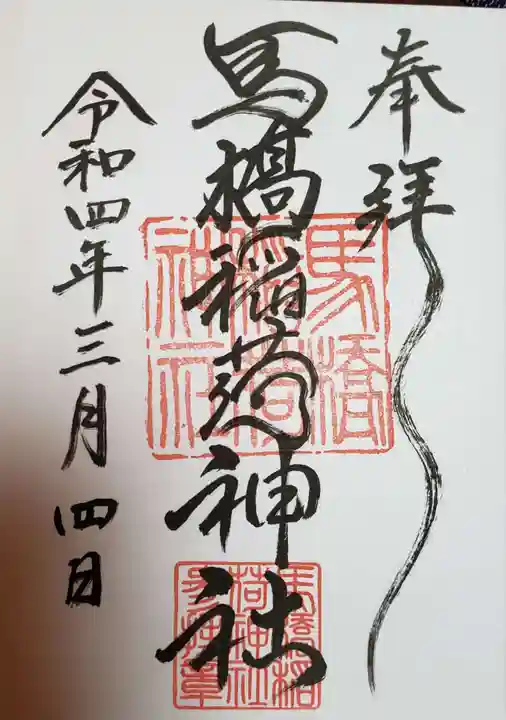 奉拝
馬橋稲荷神社
令和四年三月四日
馬橋
稲荷
神社
馬橋稲
荷神社
参拝章